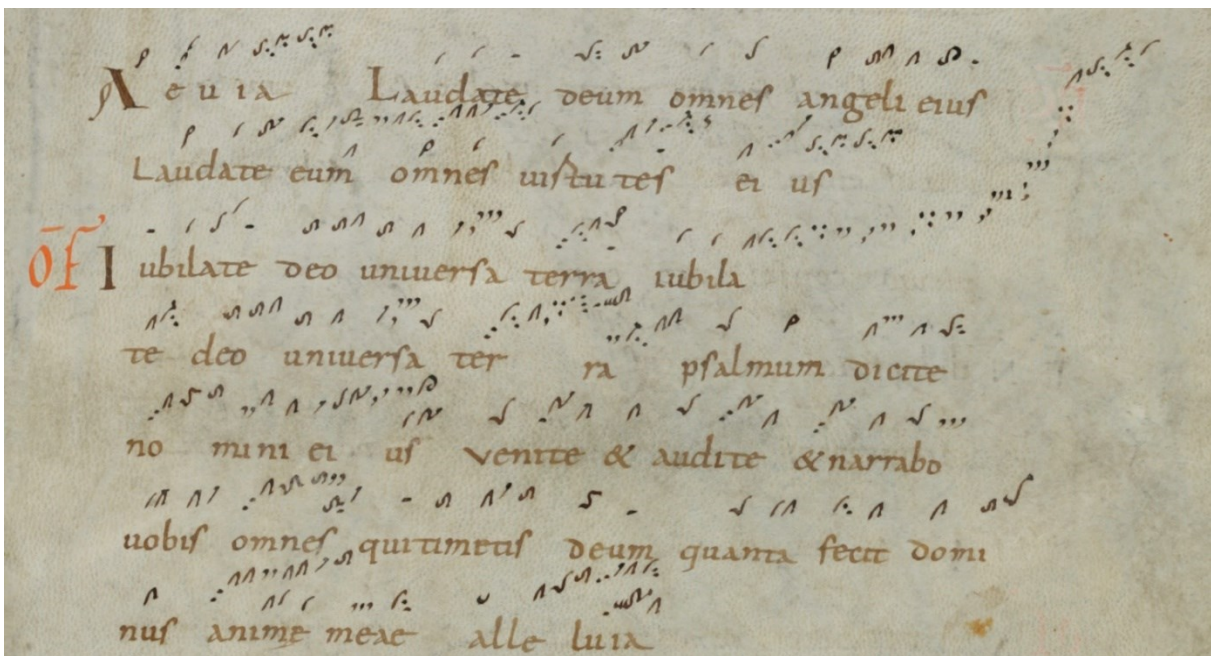 Aeuia Laudate deum omnes angeli eius
Laudate eum omnes uirtutes ei us
Of Iubilate deo uniuersa terra iubila
te deo uniuersa ter ra psalmum dicite
no mini ei us venite & audite & narrabo
uobis omnes qui timetis deum quanta fecit domi
nus anime meae alle luia